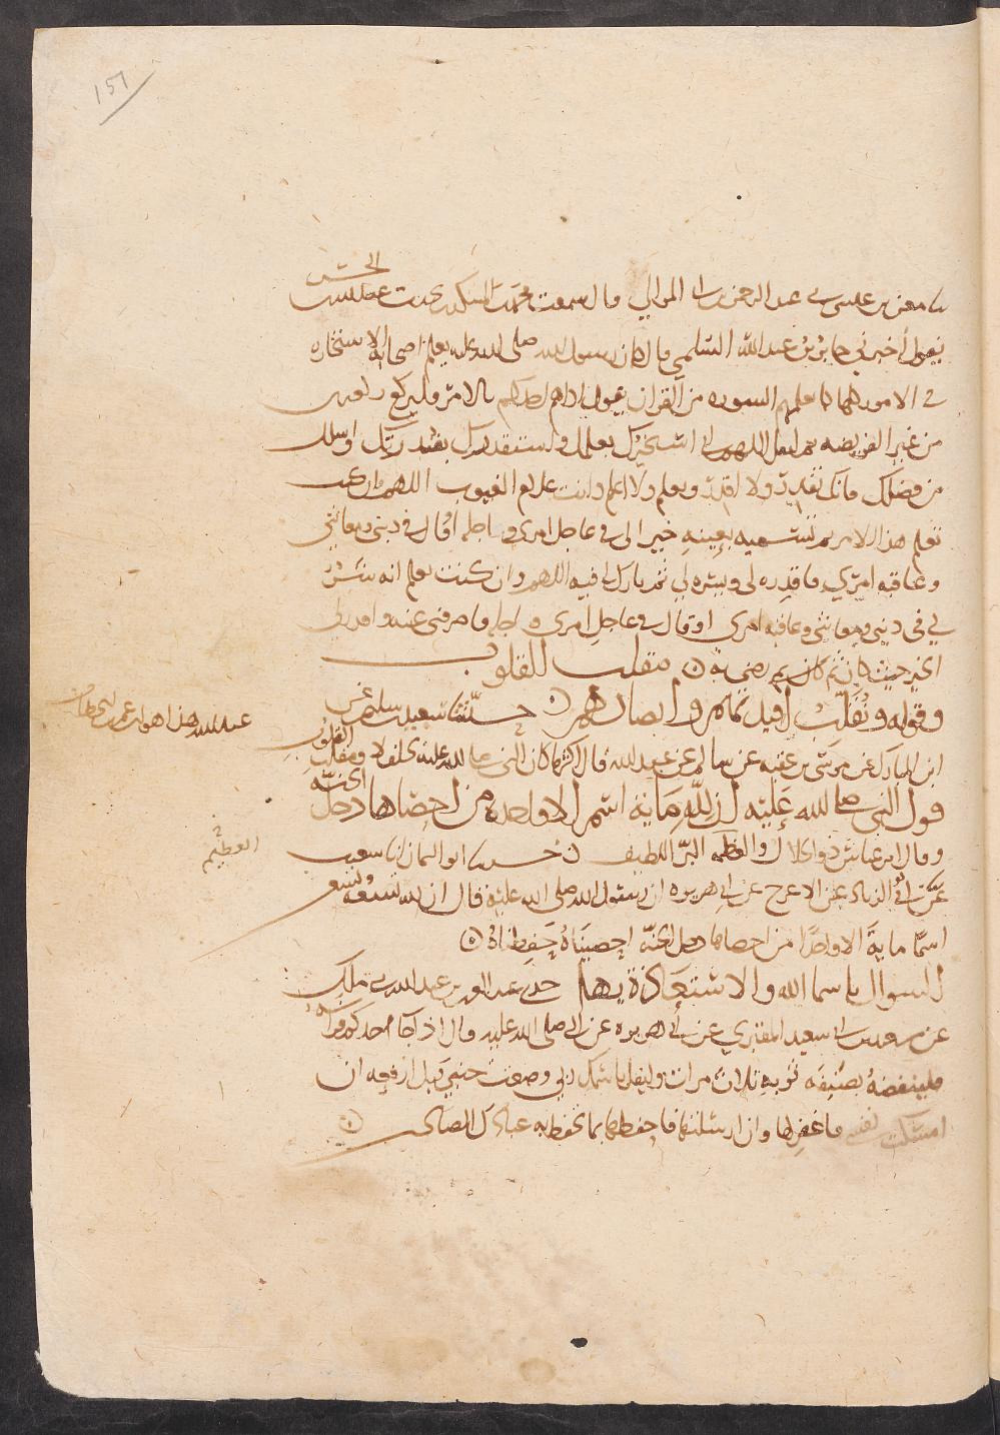 157
الحسن
ثنا معن بن عيسى ثنى عبد الرحمن بن ابى الموالي قال سمعت محمد بن المنكدر يحدث عبد الله بن
يقول أخبرني جابر بن عبد الله السلمي قال كان رسول الله صلى الله عليه يعلم اصحابه الاستخاره
في الامور كلها كما يعلمهم السوره من القران يقول اذا هم احدكم بالامر فليركع ركعتين
من غير الفريضه ثم ليقل اللهم اني استخيرك بعلمك واستقدرك بقدرتك واسلك
من فضلك فانك تقدر ولا اقدر وتعلم ولا اعلم وانت علام الغيوب اللهم فان كنت
تعلم هذا الامر ثم تسميه بعينه خيرا لى في عاجل امري واجله او قال في ديني ومعاشي
وعاقبه امري فاقدره لى ويسره لي ثم بارك لي فيه اللهم وان كنت تعلم انه شر
لي في ديني ومعاشي وعاقبه امري او قال في عاجل امري واجله فاصرفني عنه واقدر لي
الخير حيث كان ثم رضني به ن مقلب القلوب
وقوله ونقلب افيدتهم وابصارهم ن حدثنا سعيد بن سليمن عن
ابن المبارك عن موسى بن عقبه عن سالم عن عبد الله قال اكثر ما كان النبي صلى الله عليه يحلف لا ومقلب القلوب
عبد الله هذا هو ابن عمر بن الخطاب
قول النبي صلى الله عليه ان لله ماية اسم الا واحده من احصاها دخل الجنة
وقال ابن عباس ذو الجلال والعظمه البر اللطيف ن حدثنا ابو اليمان انا شعيب
العظيم
عن ابي الزناد عن الاعرج عن ابي هريره ان رسول الله صلى الله عليه قال ان لله تسعه وتسعين
اسما ماية الا واحدا من احصاها دخل الجنه احصيناه حفظناه ن
السوال باسما الله والاستعاذة بها حدثني عبد العزيز بن عبد الله ثنى ملك
عن سعيد بن ابي سعيد المقبري عن ابي هريره عن النبي صلى الله عليه قال اذا جا احدكم فراشه
فلينفضه بصنيفه ثوبه ثلاث مرات وليقل باسمك ربي وضعت جنبي وبك ارفعه ان
امسكت نفسي فاغفر لها وان ارسلتها فاحفظها بما تحفظ به عبادك الصالحين ن